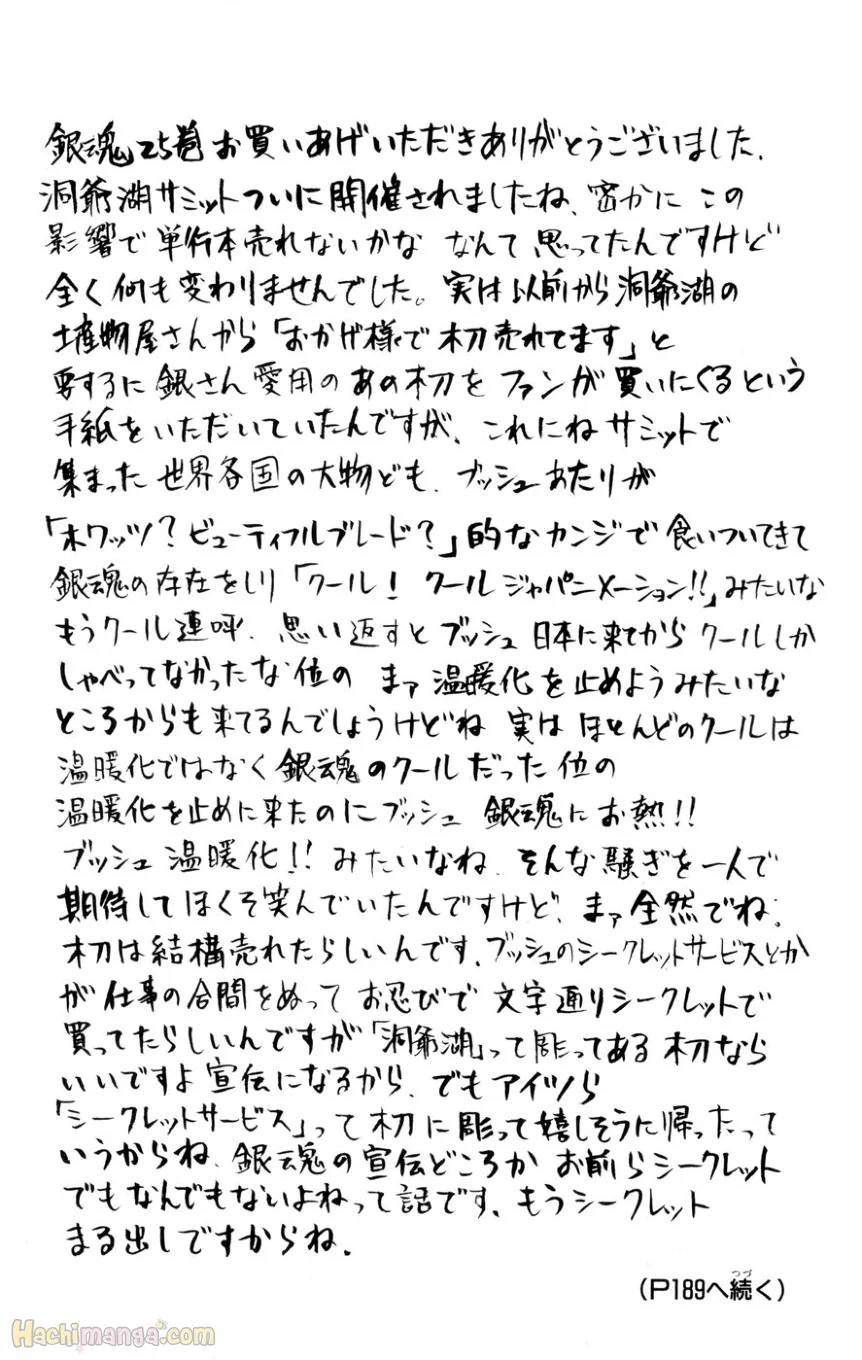 銀魂25巻お買いあげいただきありがとうございました.
洞爺湖サミットついに開催されましたね、密かに この
影響で単行本売れないかな なんて思ってたんですけど
全く何も変わりませんでした。実は以前から洞爺湖の
土産物屋さんから「おかげ様で木刀売れてます」と
要するに銀さん愛用のあの木刀をファンが買いにくるという
手紙をいただいていたんですが、これにねサミットで
集まった世界各国の大物ども、ブッシュあたりが
「ホワッツ?ビューティフルブレード?」的なカンジで食いついてきて
銀魂の存在をしり「クール! クールジャパニメーション!!」みたいな
もうクール連呼. 思い返すとブッシュ日本に来てからクールしか
しゃべってなかったな位の まァ温暖化を止めようみたいな
ところからも来てるんでしょうけどね 実はほとんどのクールは
温暖化ではなく銀魂のクールだった位の
温暖化を止めに来たのにブッシュ 銀魂にお熱!!
ブッシュ温暖化!! みたいなね. そんな騒ぎを一人で
期待してほくそ笑んでいたんですけど、まァ全然でね.
木刀は結構売れたらしいんです、ブッシュのシークレットサービスとか
が仕事の合間をぬってお忍びで文字通りシークレットで
買ってたらしいんですが「洞爺湖」って彫ってある木刀なら
いいですよ宣伝になるから、でもアイツら
「シークレットサービス」って木刀に彫って嬉しそうに帰ったって
いうからね、銀魂の宣伝どころかお前らシークレット
でもなんでもないよねって話です、もうシークレット
まる出しですからね.
(P189へ続く)
つづ
Hachimanga.com